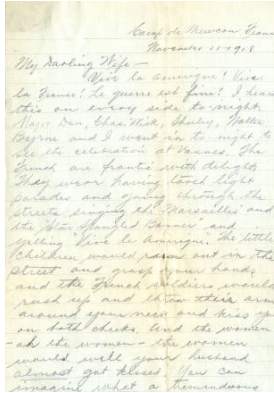 Camp de Meucon France
November 11-1918
My Darling Wife—
Vive la Amerique! Vive
la France! Le guerre est fini! I hear
this on every side to-night.
Major Don, Chas. Wick, Shuley, Walter
Beyrne and I went in to-night to
see the celebration at Vannes. The
French are frantic with delight.
They were having torch light
parades and going through the
streets singing the "Marsailles" and
the "Star Spangled Banner" and
yelling "Vive le Amerique." The little
children would run out in the
street and grasp your hands
and the French soldiers would
rush up and throw their arms
around your neck and kiss you
on both cheeks. And the women
-ah the women- the women
would well your husband
almost got kissed. You can
imagine what a tremendous